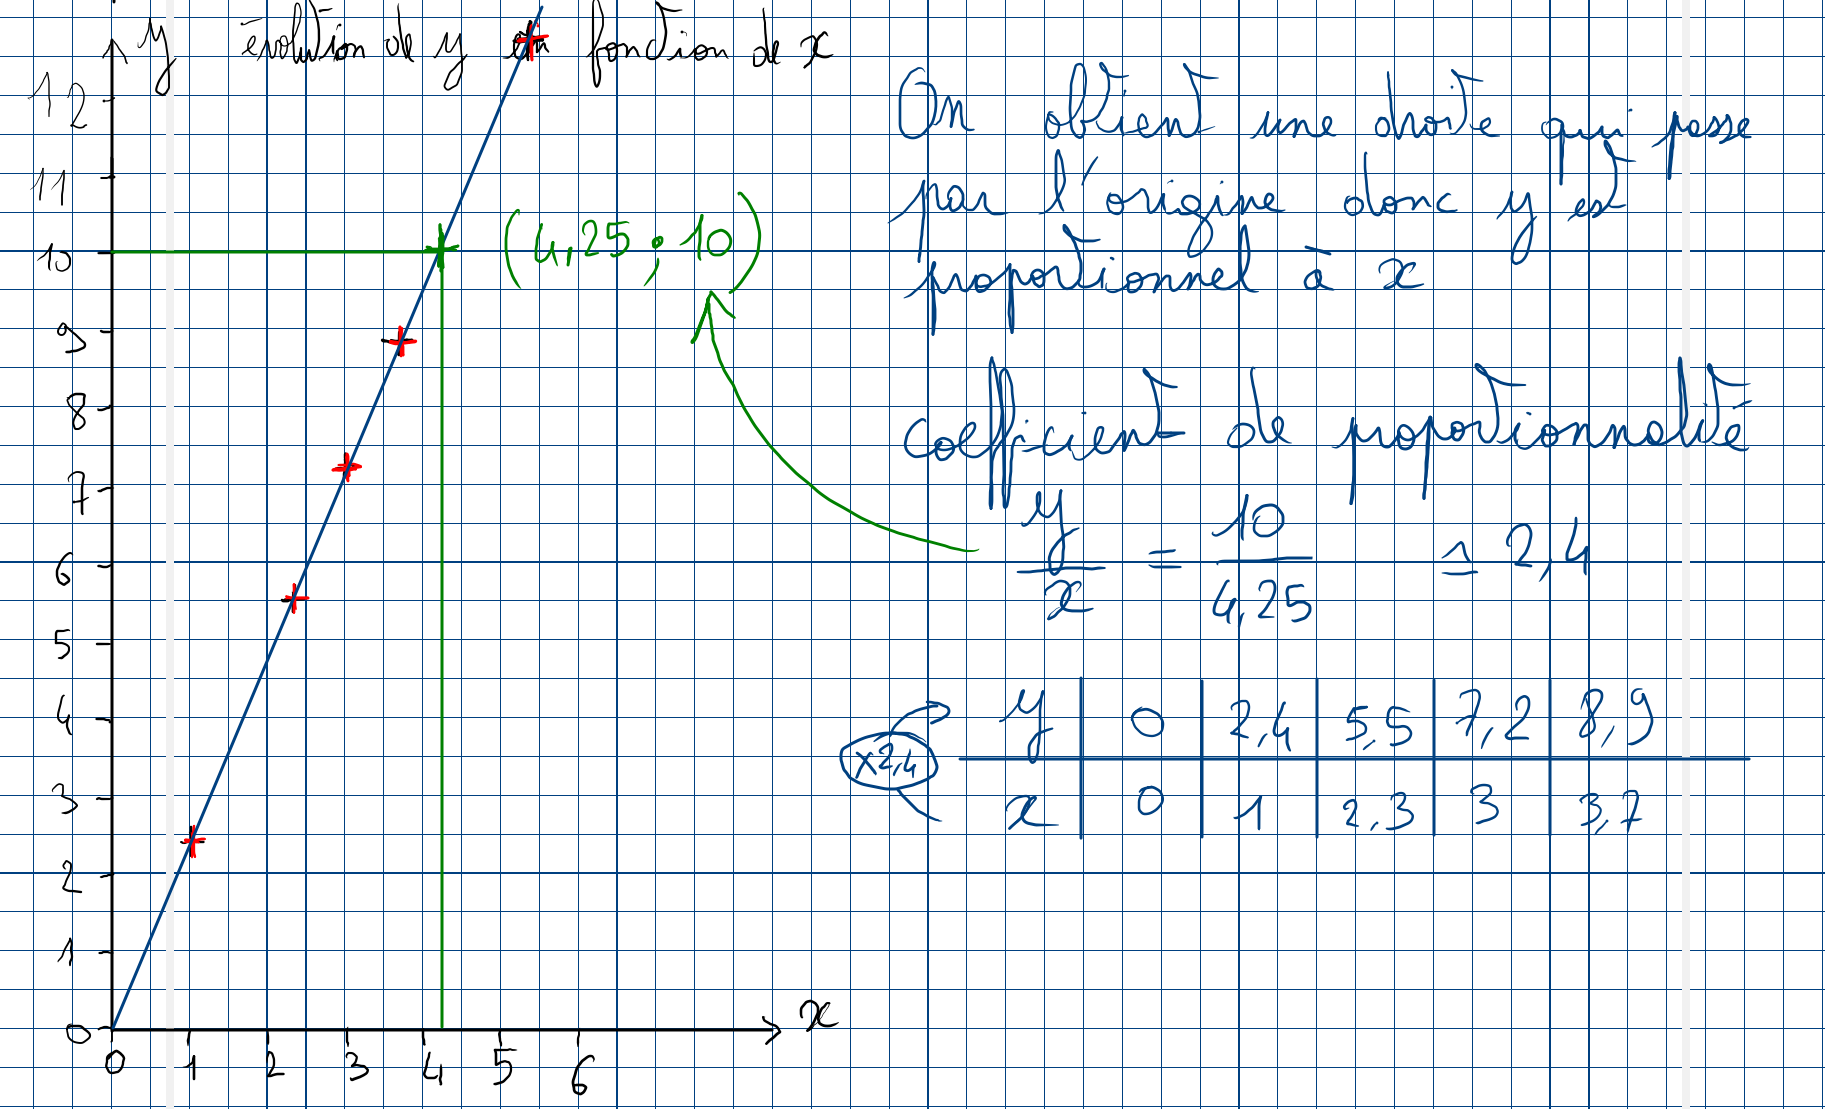 y évolution de y en fonction de x
12
11
10
9
8
7
6
5
4
3
2
1
0
0 1 2 3 4 5 6
x
(4,25 ; 10)
On obtient une droite qui passe
par l'origine donc y est
proportionnel à x
coefficient de proportionnalité
y/x = 10/4,25 ≃ 2,4
×2,4
y 0 2,4 5,5 7,2 8,9
x 0 1 2,3 3 3,7